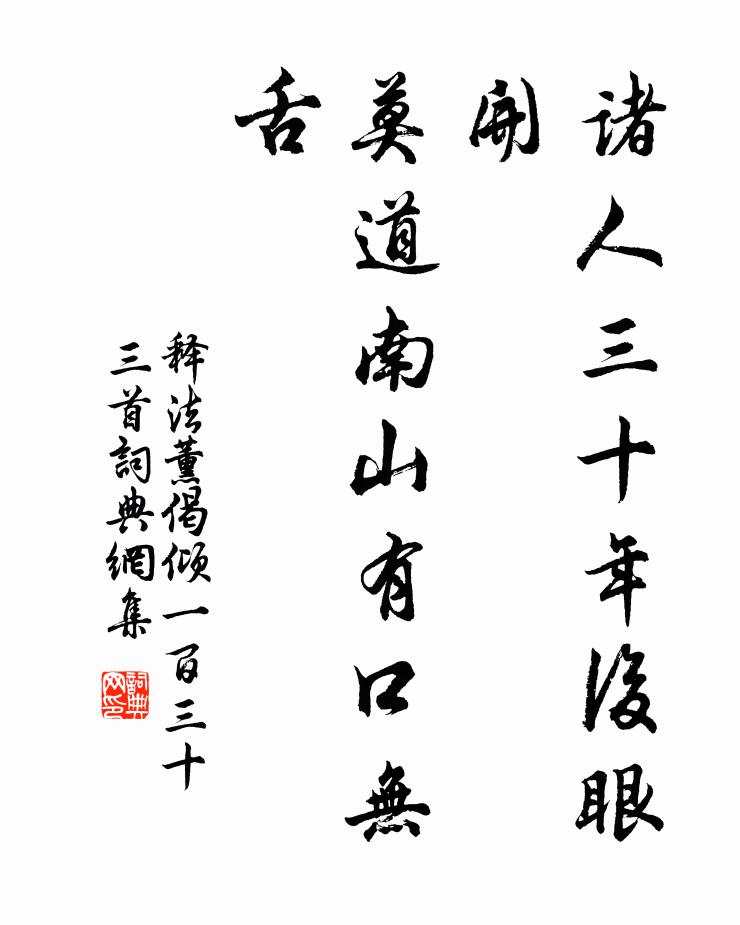 諸人三十年後眼
開
莫道南山有口無
舌
释法薰偈倾一百三十
三首詞典網集
詞典网印